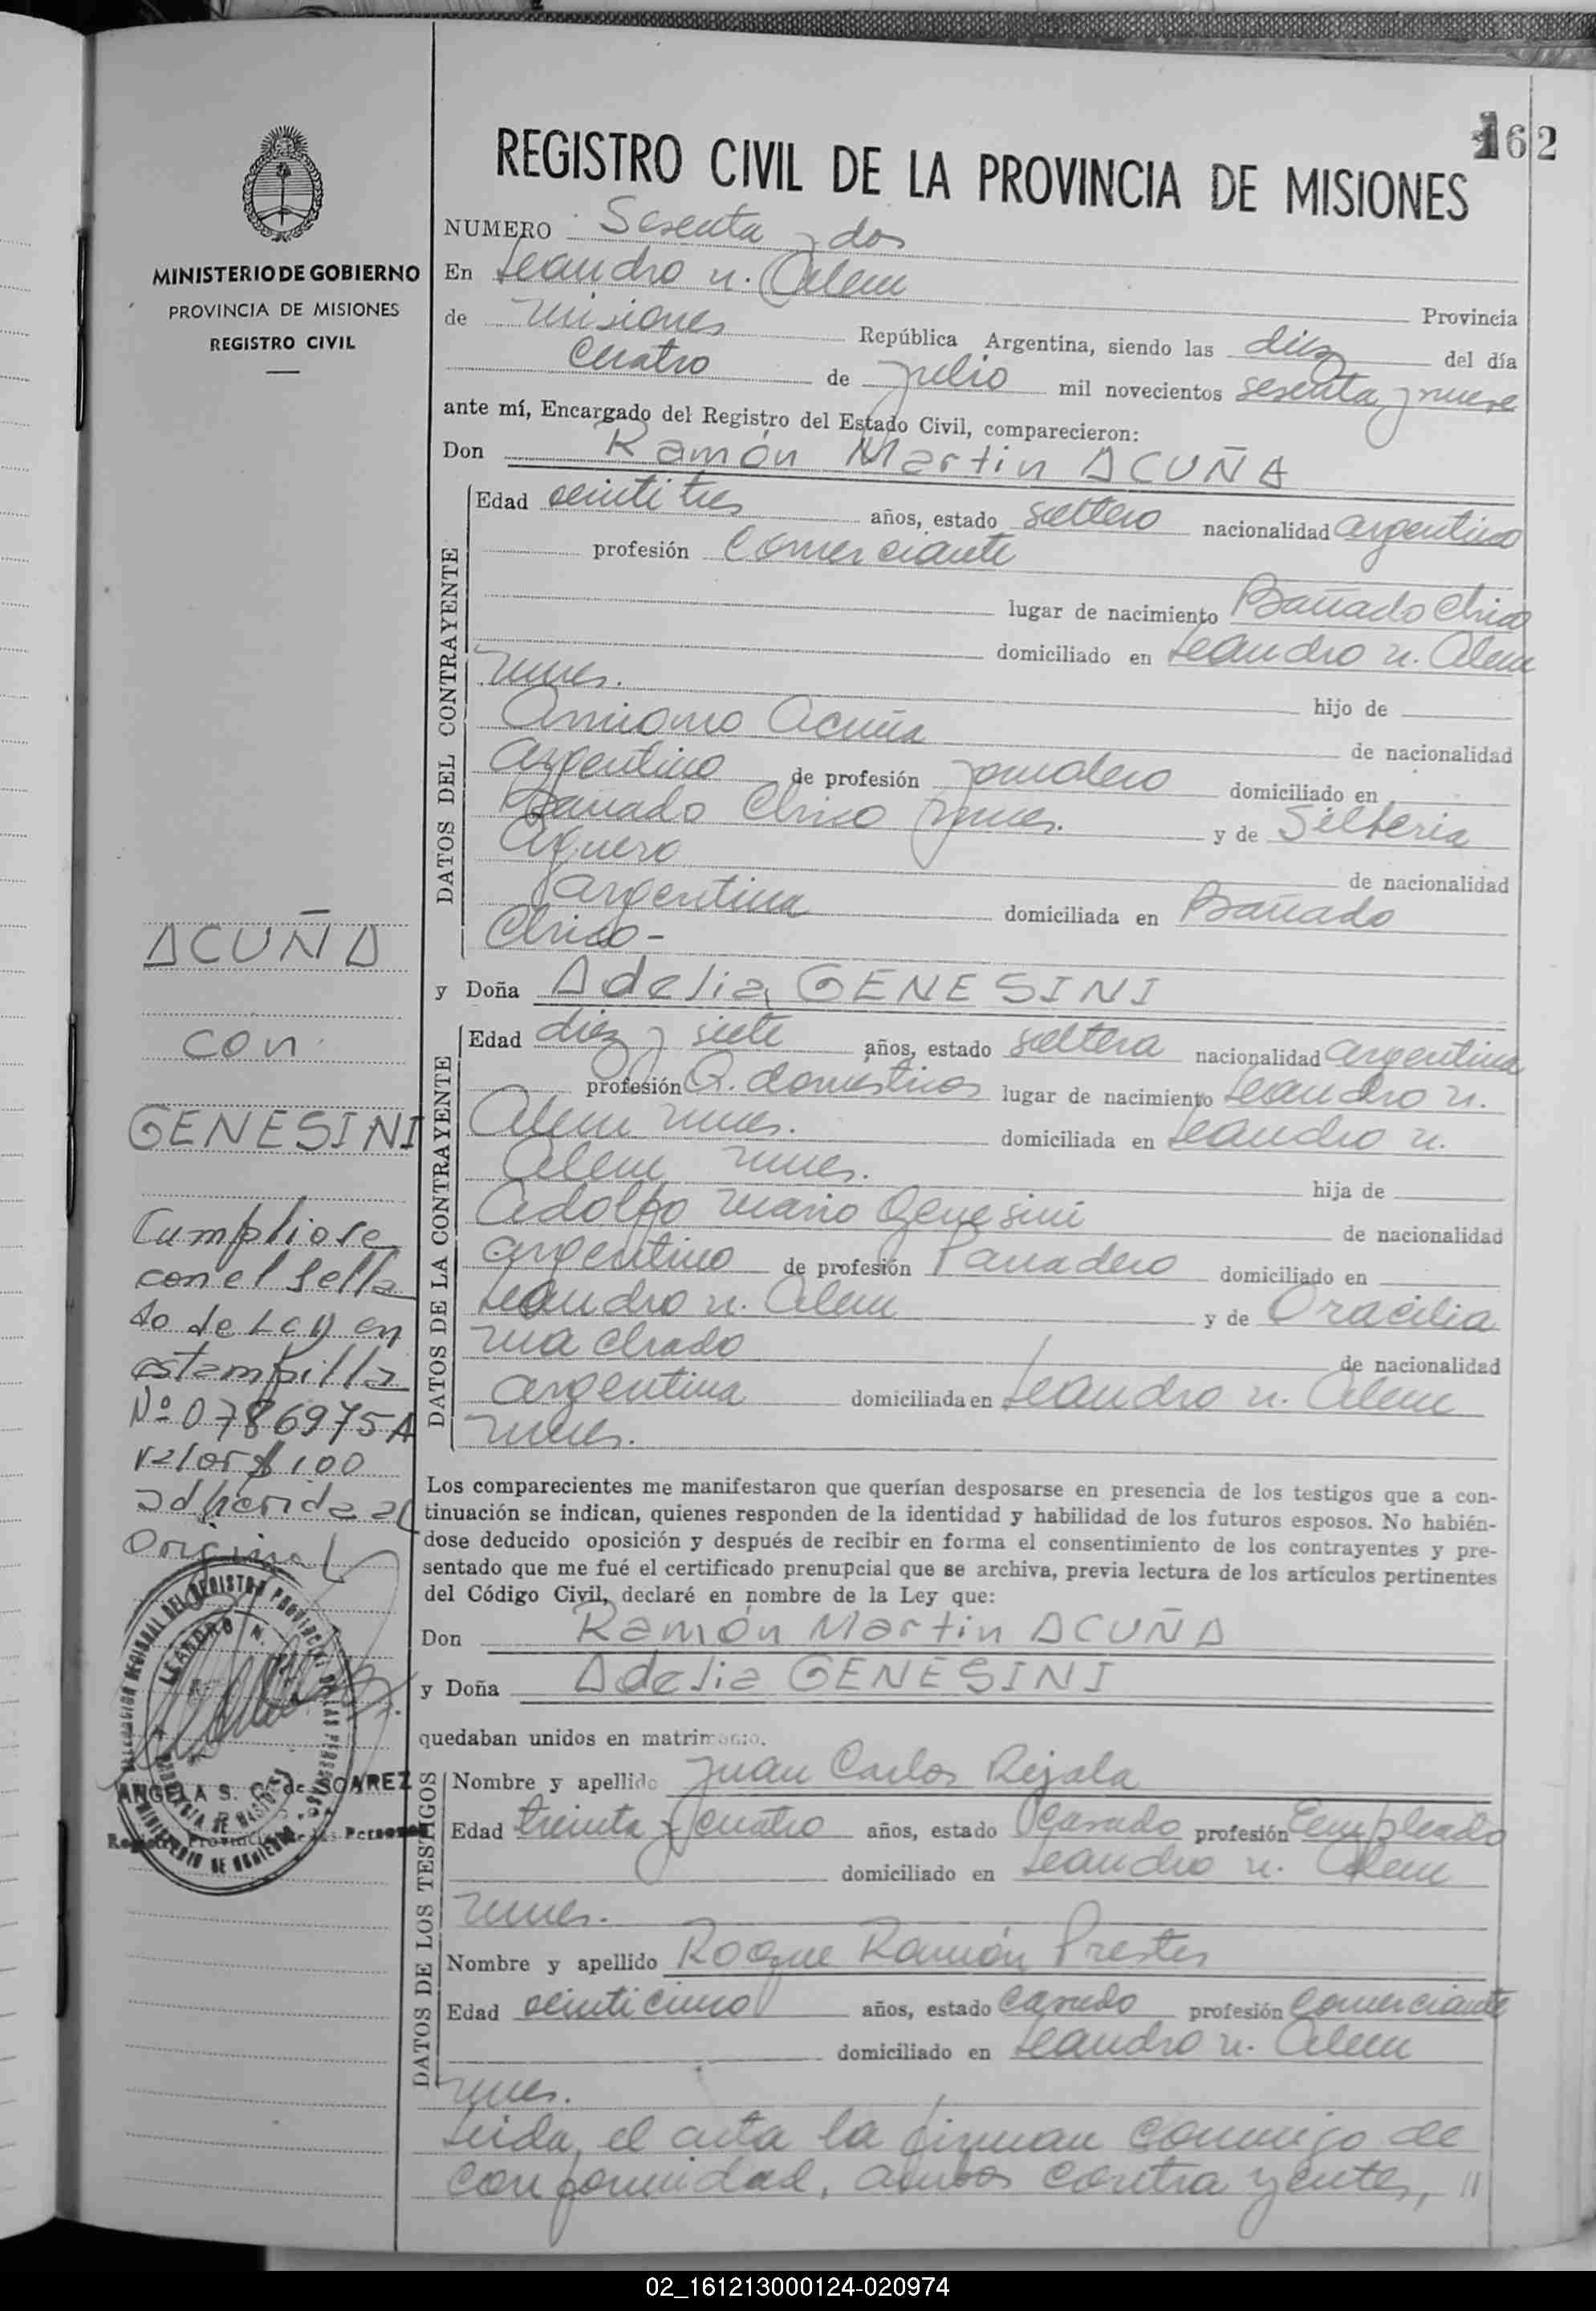 162
REGISTRO CIVIL DE LA PROVINCIA DE MISIONES
MINISTERIO DE GOBIERNO
PROVINCIA DE MISIONES
REGISTRO CIVIL
NUMERO Sesenta y dos
En Leandro n. Alem
Provincia
de Misiones República Argentina, siendo las diez del día
cuatro de julio mil novecientos sesenta y nueve
ante mí, Encargado del Registro del Estado Civil, comparecieron:
Don Ramón Martin ACUÑA
DATOS DEL CONTRAYENTE
Edad veintitres años, estado soltero nacionalidad argentino
profesión Comerciante
lugar de nacimiento Bañado Chico
domiciliado en Leandro n. Alem
mnes. hijo de
Acuña de nacionalidad
argentino de profesión jornalero domiciliado en
Bañado Chico mnes. y de Silberia
Aguero de nacionalidad
argentina domiciliada en Bañado
Chico-
y Doña Adelia GENESINI
DATOS DE LA CONTRAYENTE
Edad diez y siete años, estado soltera nacionalidad argentina
profesión Q. domesticos lugar de nacimiento Leandro n.
Alem mnes. domiciliada en Leandro n.
Alem mnes. hija de
Adolfo Mario Genesini de nacionalidad
argentino de profesión Panadero domiciliado en
Leandro n. Alem y de Oracilia
Machado de nacionalidad
argentina domiciliada en Leandro n. Alem
mnes.
Los comparecientes me manifestaron que querían desposarse en presencia de los testigos que a con-
tinuación se indican, quienes responden de la identidad y habilidad de los futuros esposos. No habién-
dose deducido oposición y después de recibir en forma el consentimiento de los contrayentes y pre-
sentado que me fué el certificado prenupcial que se archiva, previa lectura de los artículos pertinentes
del Código Civil, declaré en nombre de la Ley que:
Don Ramón Martin ACUÑA
y Doña Adelia GENESINI
quedaban unidos en matrimonio.
DATOS DE LOS TESTIGOS
Nombre y apellido Juan Carlos Rejala
Edad treinta y cuatro años, estado casado profesión Empleado
domiciliado en Leandro n. Alem
mnes.
Nombre y apellido Roque Ramón Prestes
Edad veinticinco años, estado casado profesión comerciante
domiciliado en Leandro n. Alem
mnes.
Leida el acta la firman conmigo de
conformidad, ambos contrayentes, //
ACUÑA
con
GENESINI
Cumpliose
con el sella
do de Ley en
estampilla
Nº 0786975A
valor $ 100
adherida al
Original
LEANDRO N.
ANGELA S. G. de SOAREZ
02_161213000124-020974